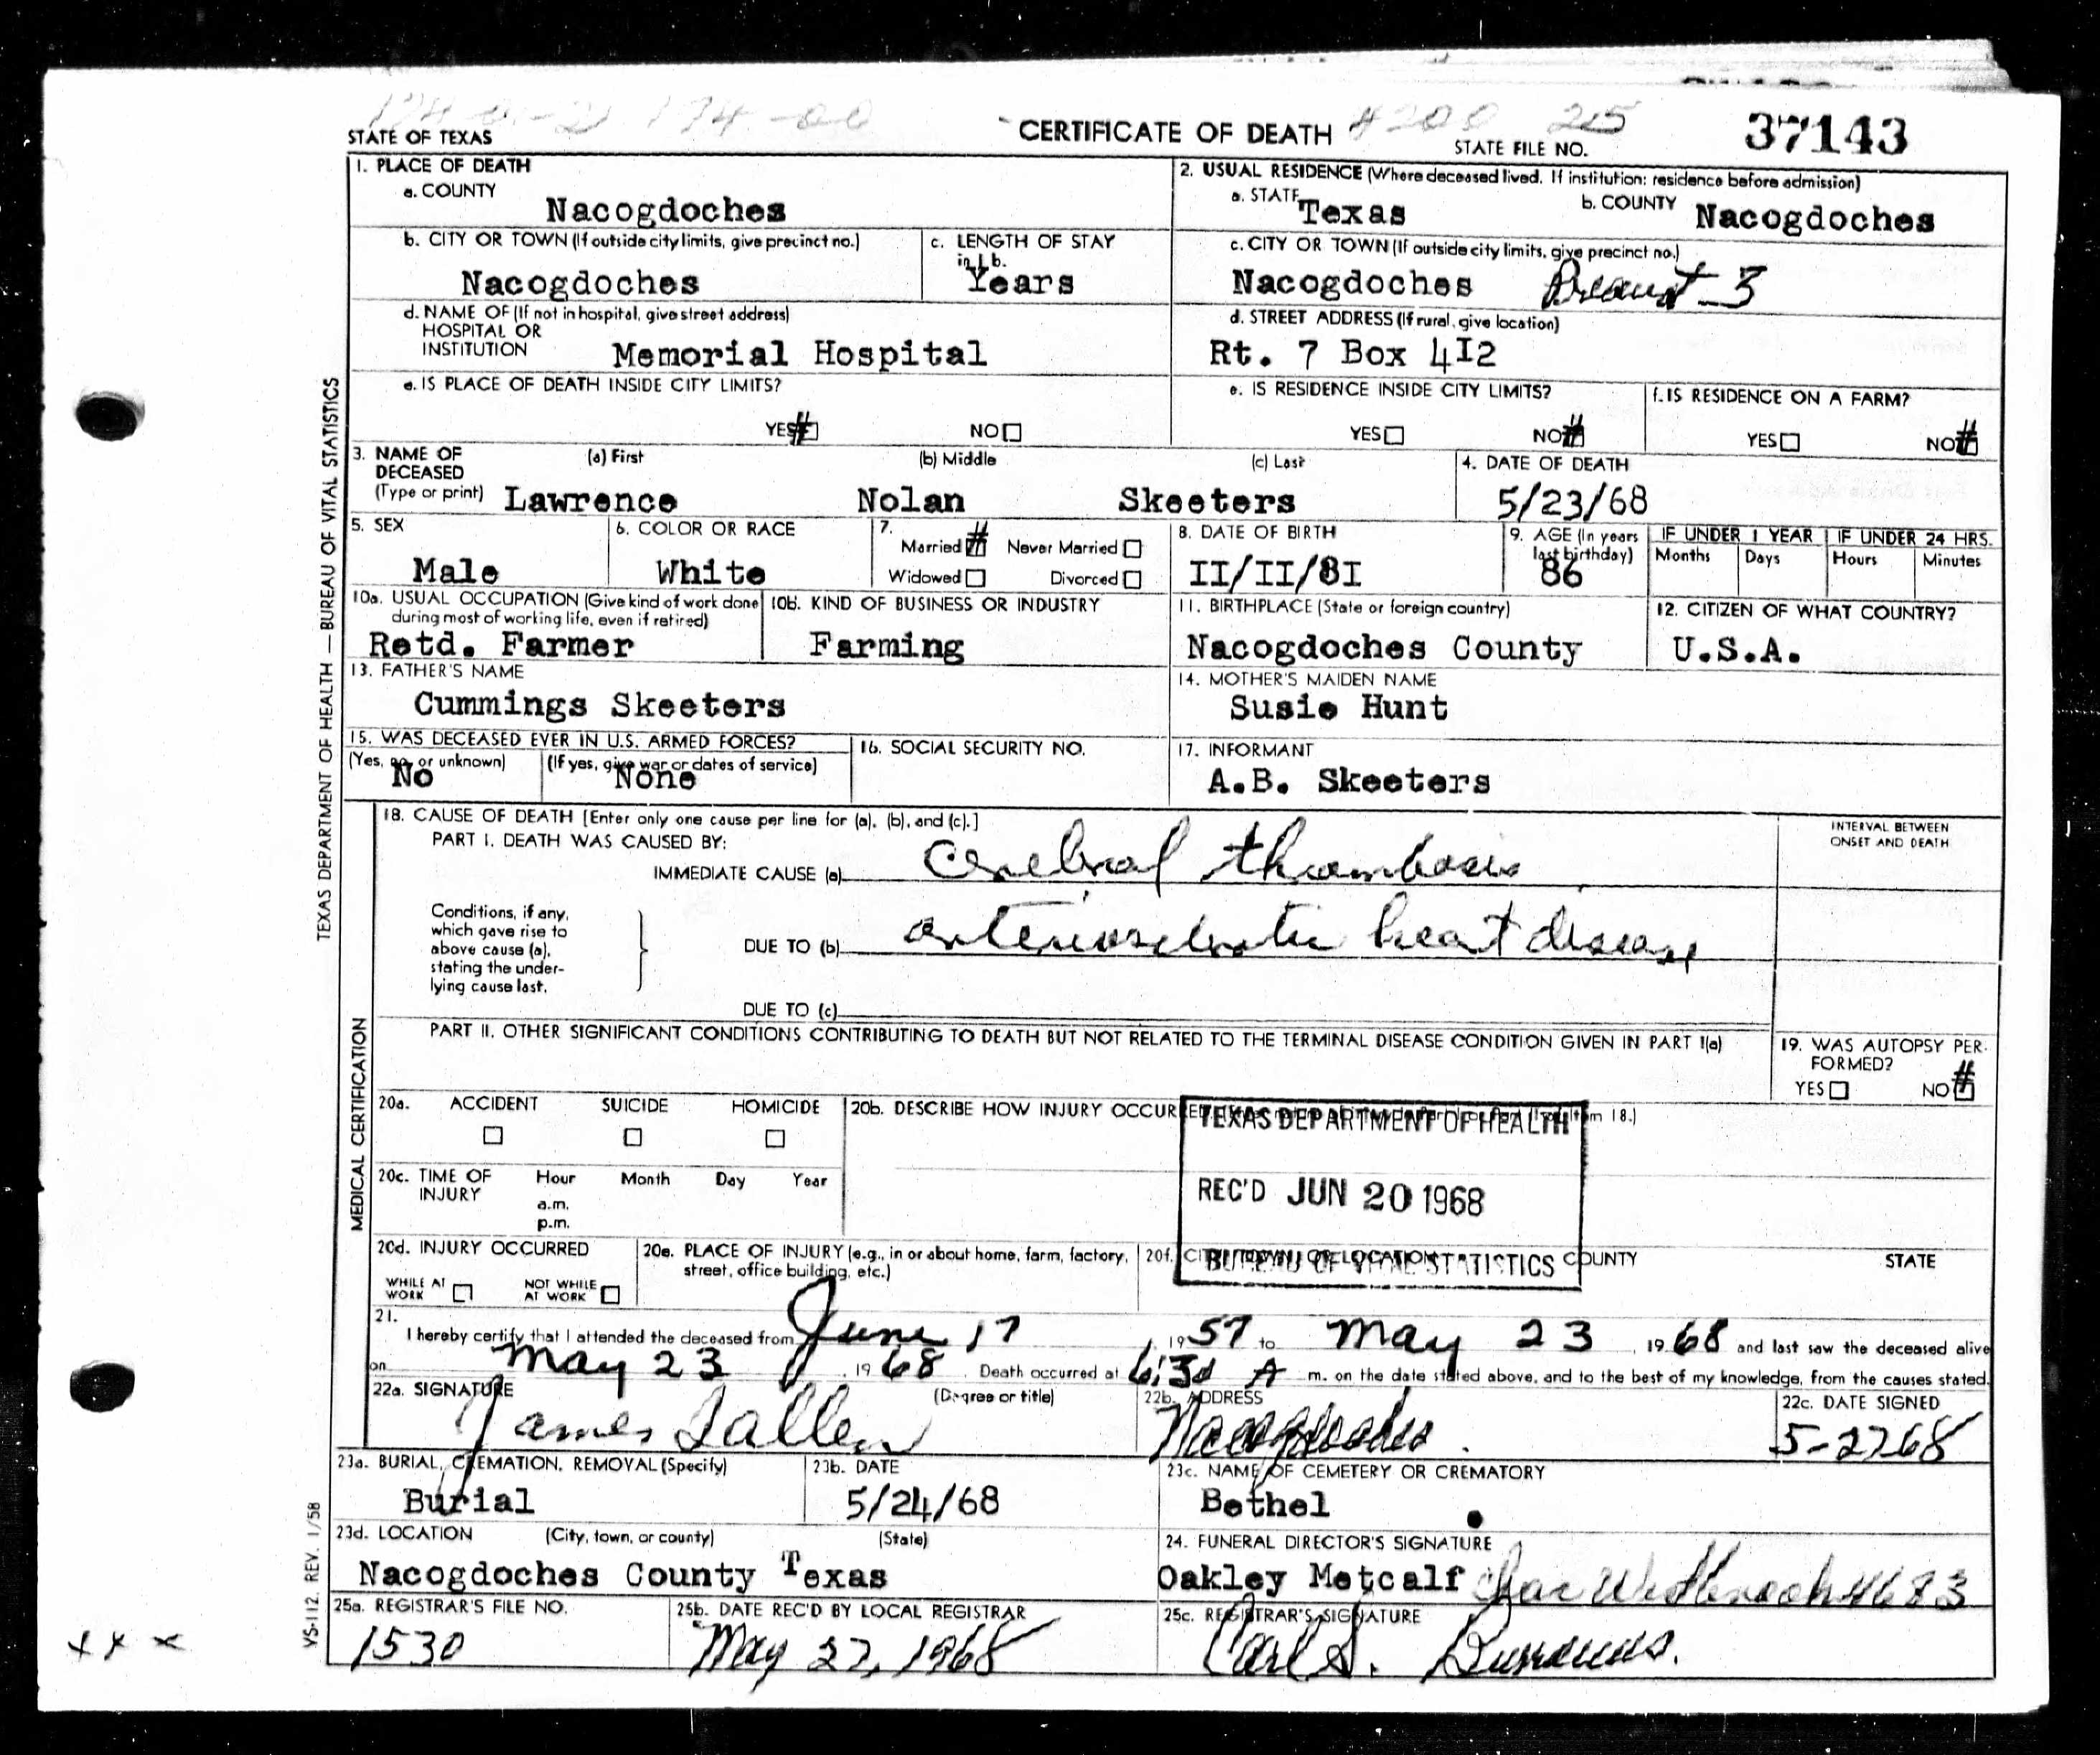 STATE OF TEXAS
CERTIFICATE OF DEATH
STATE FILE NO. 37143
1. PLACE OF DEATH
a. COUNTY
Nacogdoches
2. USUAL RESIDENCE (Where deceased lived. If institution: residence before admission)
a. STATE Texas
b. COUNTY Nacogdoches
b. CITY OR TOWN (If outside city limits, give precinct no.)
Nacogdoches
c. LENGTH OF STAY
in 1 b.
Years
c. CITY OR TOWN (If outside city limits, give precinct no.)
Nacogdoches 3
d. NAME OF (If not in hospital, give street address)
HOSPITAL OR
INSTITUTION Memorial Hospital
d. STREET ADDRESS (If rural, give location)
Rt. 7 Box 4I2
e. IS PLACE OF DEATH INSIDE CITY LIMITS?
YES # NO
e. IS RESIDENCE INSIDE CITY LIMITS?
YES NO #
f. IS RESIDENCE ON A FARM?
YES NO #
3. NAME OF
DECEASED
(Type or print)
(a) First (b) Middle (c) Last
Lawrence Nolan Skeeters
4. DATE OF DEATH
5/23/68
5. SEX
Male
6. COLOR OR RACE
White
7.
Married # Never Married
Widowed Divorced
8. DATE OF BIRTH
II/II/8I
9. AGE (In years
last birthday)
86
IF UNDER 1 YEAR
Months Days
IF UNDER 24 HRS.
Hours Minutes
10a. USUAL OCCUPATION (Give kind of work done
during most of working life, even if retired)
Retd. Farmer
10b. KIND OF BUSINESS OR INDUSTRY
Farming
11. BIRTHPLACE (State or foreign country)
Nacogdoches County
12. CITIZEN OF WHAT COUNTRY?
U.S.A.
13. FATHER'S NAME
Cummings Skeeters
14. MOTHER'S MAIDEN NAME
Susie Hunt
15. WAS DECEASED EVER IN U.S. ARMED FORCES?
(Yes, no, or unknown) (If yes, give war or dates of service)
No None
16. SOCIAL SECURITY NO.
17. INFORMANT
A.B. Skeeters
18. CAUSE OF DEATH [Enter only one cause per line for (a), (b), and (c).]
PART I. DEATH WAS CAUSED BY:
IMMEDIATE CAUSE (a) Cerebral thrombosis
INTERVAL BETWEEN
ONSET AND DEATH
Conditions, if any,
which gave rise to
above cause (a),
stating the under-
lying cause last.
DUE TO (b) arteriosclerotic heart disease
DUE TO (c)
PART II. OTHER SIGNIFICANT CONDITIONS CONTRIBUTING TO DEATH BUT NOT RELATED TO THE TERMINAL DISEASE CONDITION GIVEN IN PART I(a)
19. WAS AUTOPSY PER-
FORMED?
YES NO #
20a. ACCIDENT SUICIDE HOMICIDE
20b. DESCRIBE HOW INJURY OCCURRED 18.)
TEXAS DEPARTMENT OF HEALTH
REC'D JUN 20 1968
BUREAU OF VITAL STATISTICS
20c. TIME OF
INJURY
Hour Month Day Year
a.m.
p.m.
20d. INJURY OCCURRED
WHILE AT
WORK
NOT WHILE
AT WORK
20e. PLACE OF INJURY (e.g., in or about home, farm, factory,
street, office building, etc.)
20f. CITY, TOWN, OR LOCATION COUNTY STATE
21.
I hereby certify that I attended the deceased from June 17, 1957 to May 23, 1968 and last saw the deceased alive
on May 23, 1968. Death occurred at 6:30 A m. on the date stated above, and to the best of my knowledge, from the causes stated.
22a. SIGNATURE (Degree or title)
James
22b. ADDRESS
Nacogdoches.
22c. DATE SIGNED
5-2768
23a. BURIAL, CREMATION, REMOVAL (Specify)
Burial
23b. DATE
5/24/68
23c. NAME OF CEMETERY OR CREMATORY
Bethel
23d. LOCATION (City, town, or county) (State)
Nacogdoches County Texas
24. FUNERAL DIRECTOR'S SIGNATURE
Oakley Metcalf 4683
25a. REGISTRAR'S FILE NO.
1530
25b. DATE REC'D BY LOCAL REGISTRAR
May 27, 1968
25c. REGISTRAR'S SIGNATURE
Carl S.
TEXAS DEPARTMENT OF HEALTH — BUREAU OF VITAL STATISTICS
MEDICAL CERTIFICATION
VS-112. REV. 1/58
x x x